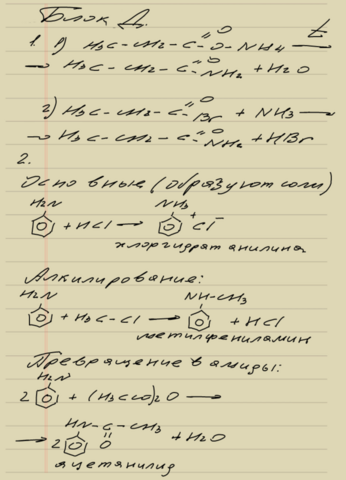 Блок Д.
1. 1) H₃C-CH₂-C(=O)-O-NH₄ —t→
→ H₃C-CH₂-C(=O)-NH₂ + H₂O
2) H₃C-CH₂-C(=O)-Br + NH₃ →
→ H₃C-CH₂-C(=O)-NH₂ + HBr
2.
Основные (образуют соли)
H₂N NH₃
+ HCl → + Cl⁻
хлоргидрат анилина
Алкилирование:
H₂N NH-CH₃
+ H₃C-Cl → + HCl
метилфениламин
Превращение в амиды:
H₂N
2 + (H₃CCO)₂O →
HN-C-CH₃
→ 2 O + H₂O
ацетанилид